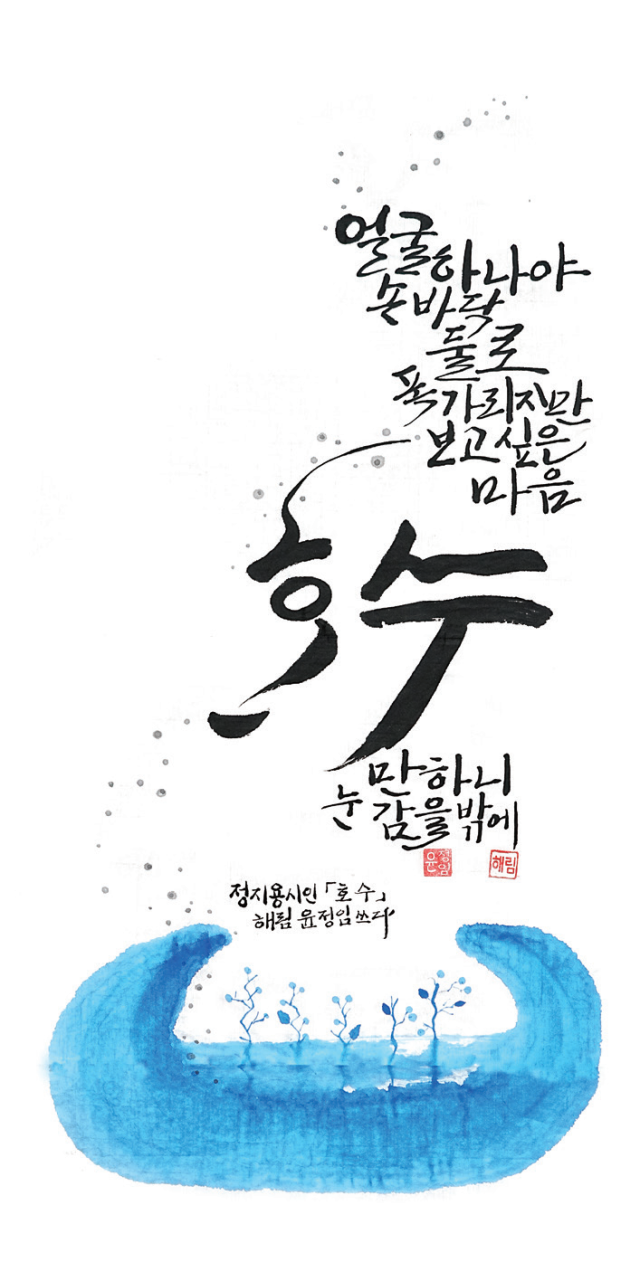 얼굴 하나야
손바닥
둘로
폭 가리지만
보고싶은
마음
호수
만하니
눈 감을밖에
윤정임
해림
정지용시인 「호수」
해림 윤정임 쓰다